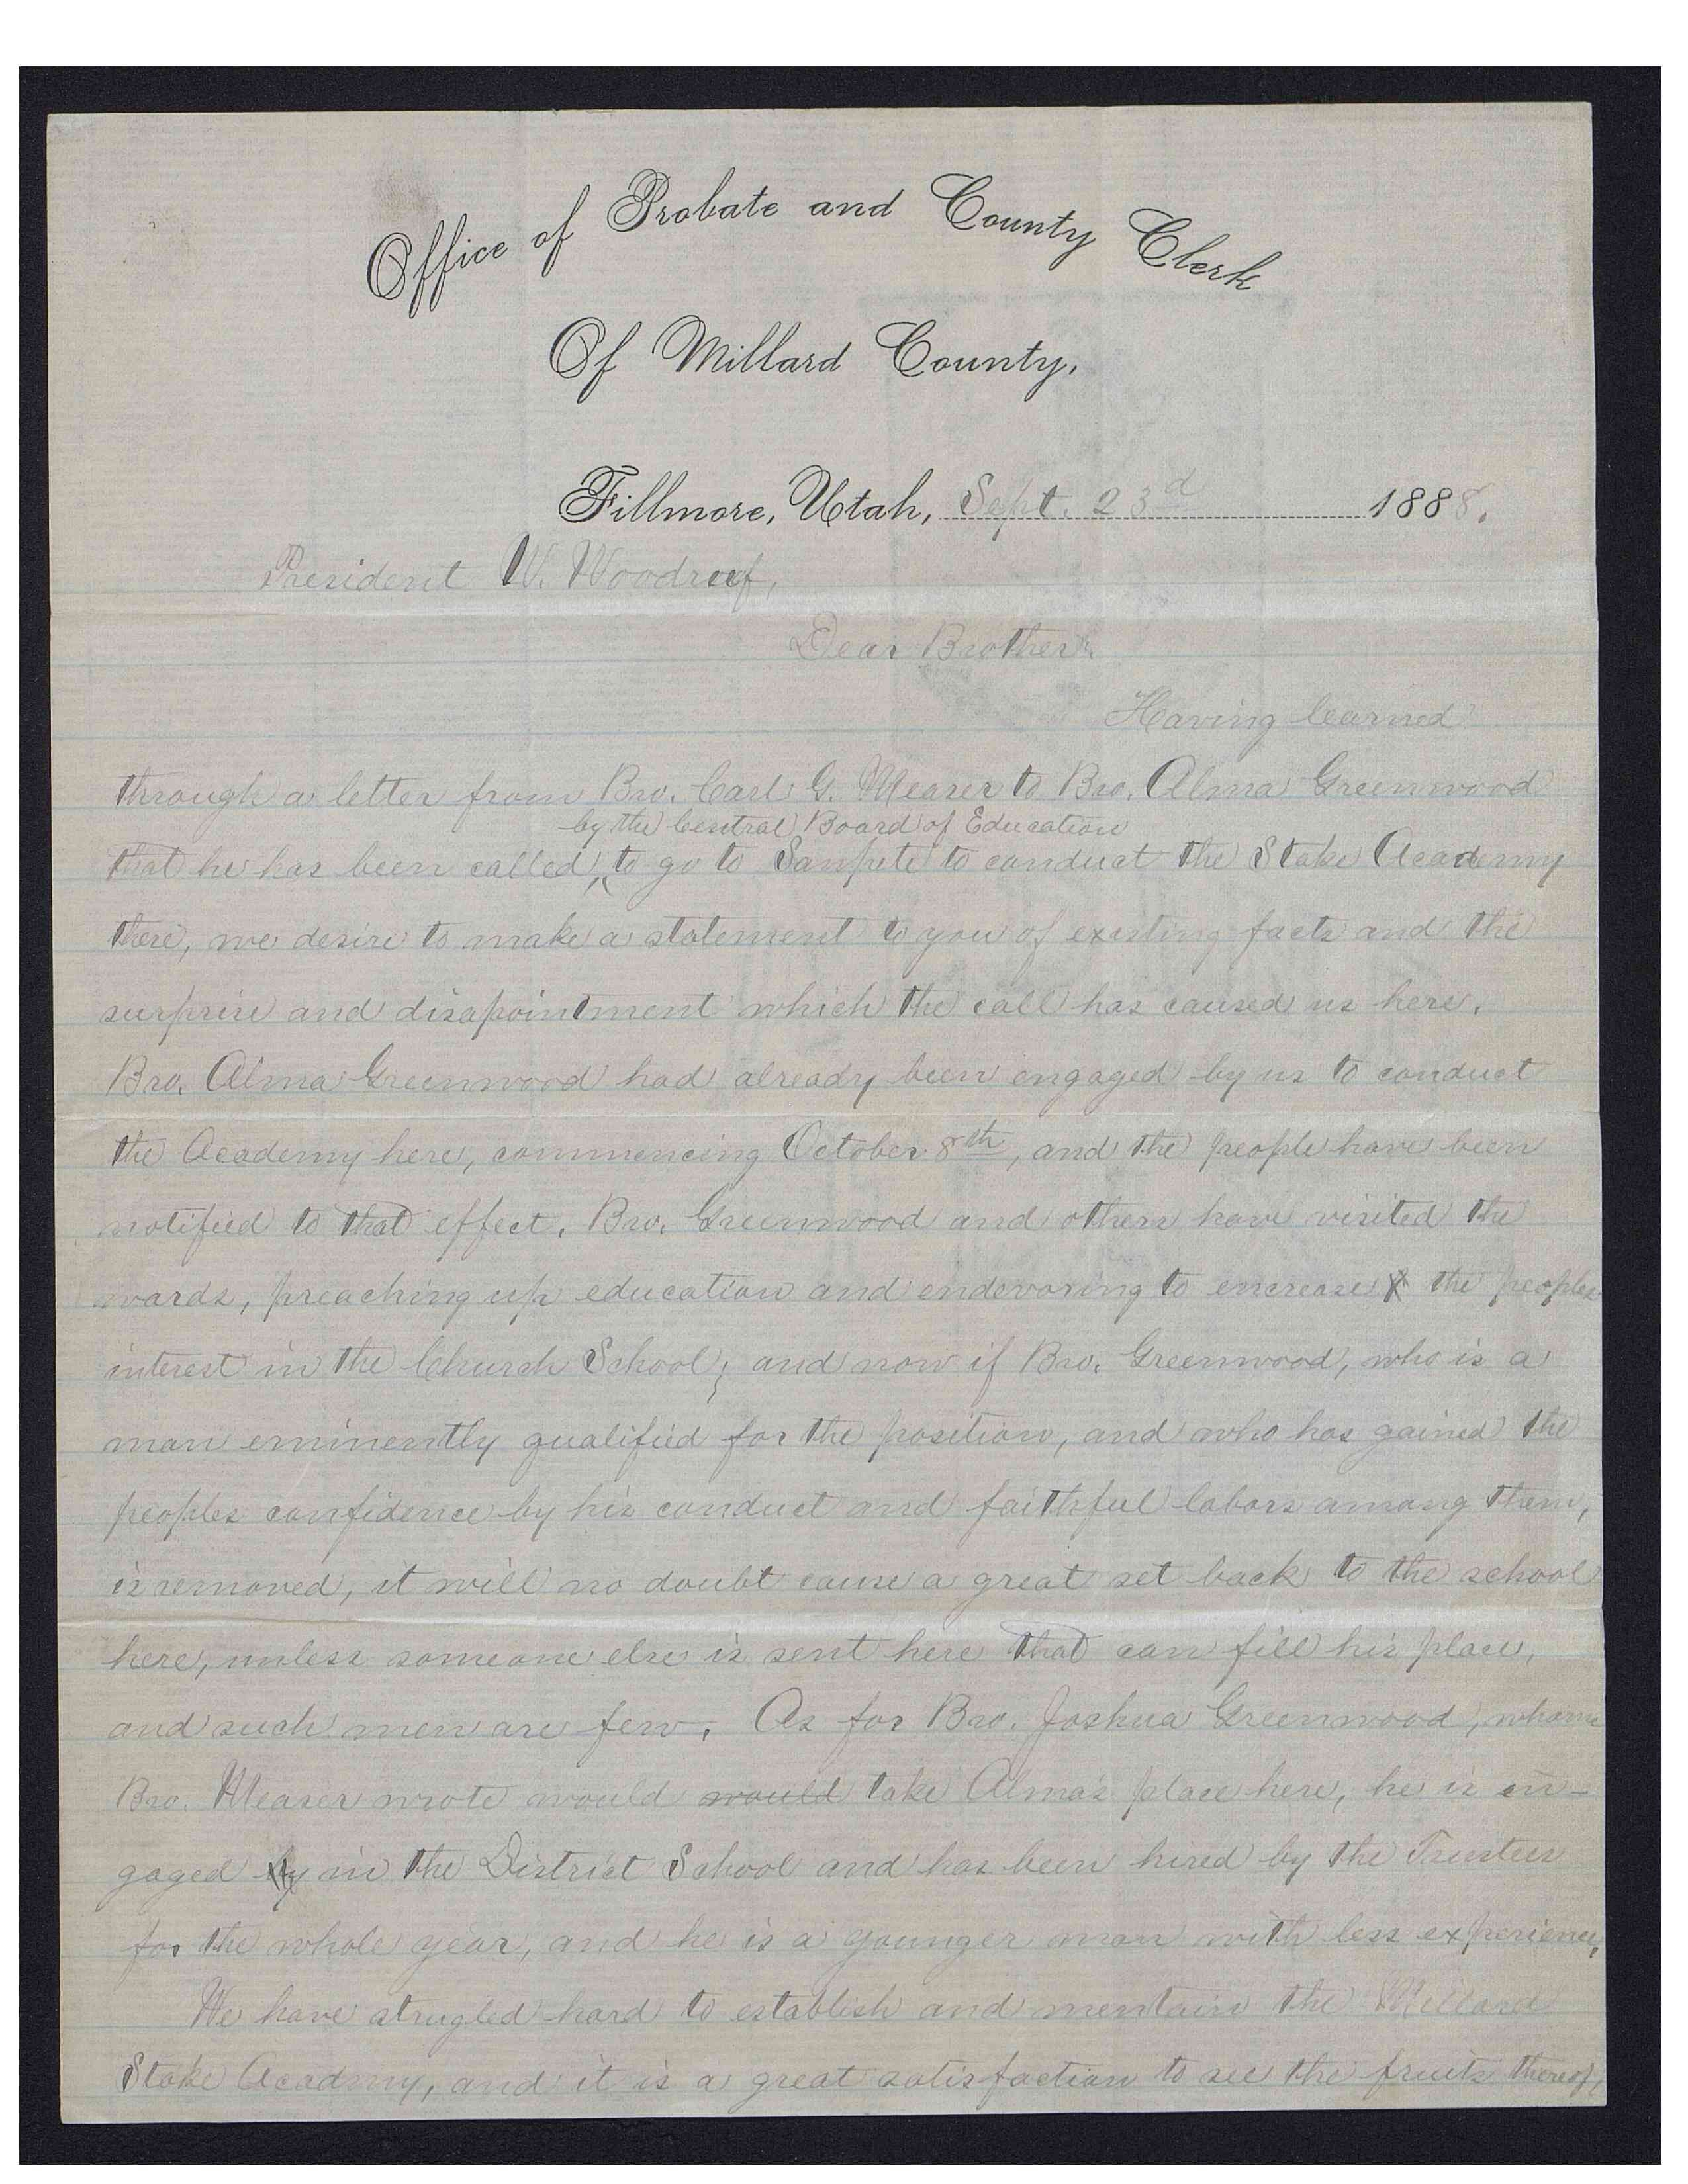 Office of Probate and County Clerk
Of Millard County.
Fillmore, Utah, Sept. 23d 1888.
President W. Woodruf,
Dear Brother:
Having learned
through a letter from Bro. Carl G. Measer to Bro. Alma Greenwood
by the Central Board of Education
that he has been called, to go to Sanpete to conduct the Stake Academy
there, we desire to make a statement to you of existing facts and the
surprise and disapointment which the call has caused us here.
Bro. Alma Greenwood had already been engaged by us to conduct
the Academy here, commencing October 8th, and the people have been
notified to that effect. Bro. Greenwood and others have visited the
wards, preaching up education and endevoring to encrease the peoples
interest in the Church School; and now if Bro. Greenwood, who is a
man eminently qualified for the position, and who has gained the
peoples confidence by his conduct and faithful labors among them,
is removed, it will no doubt cause a great set back to the school
here, unless someone else is sent here that can fill his place,
and such men are few. As for Bro. Joshua Greenwood, whom
Bro. Measer wrote would would take Alma's place here, he is en-
gaged by in the District School and has been hired by the Trustees
for the whole year, and he is a younger man with less experience,
We have strugled hard to establish and mentain the Millard
Stake Acadmy, and it is a great satisfaction to see the fruits thereof,